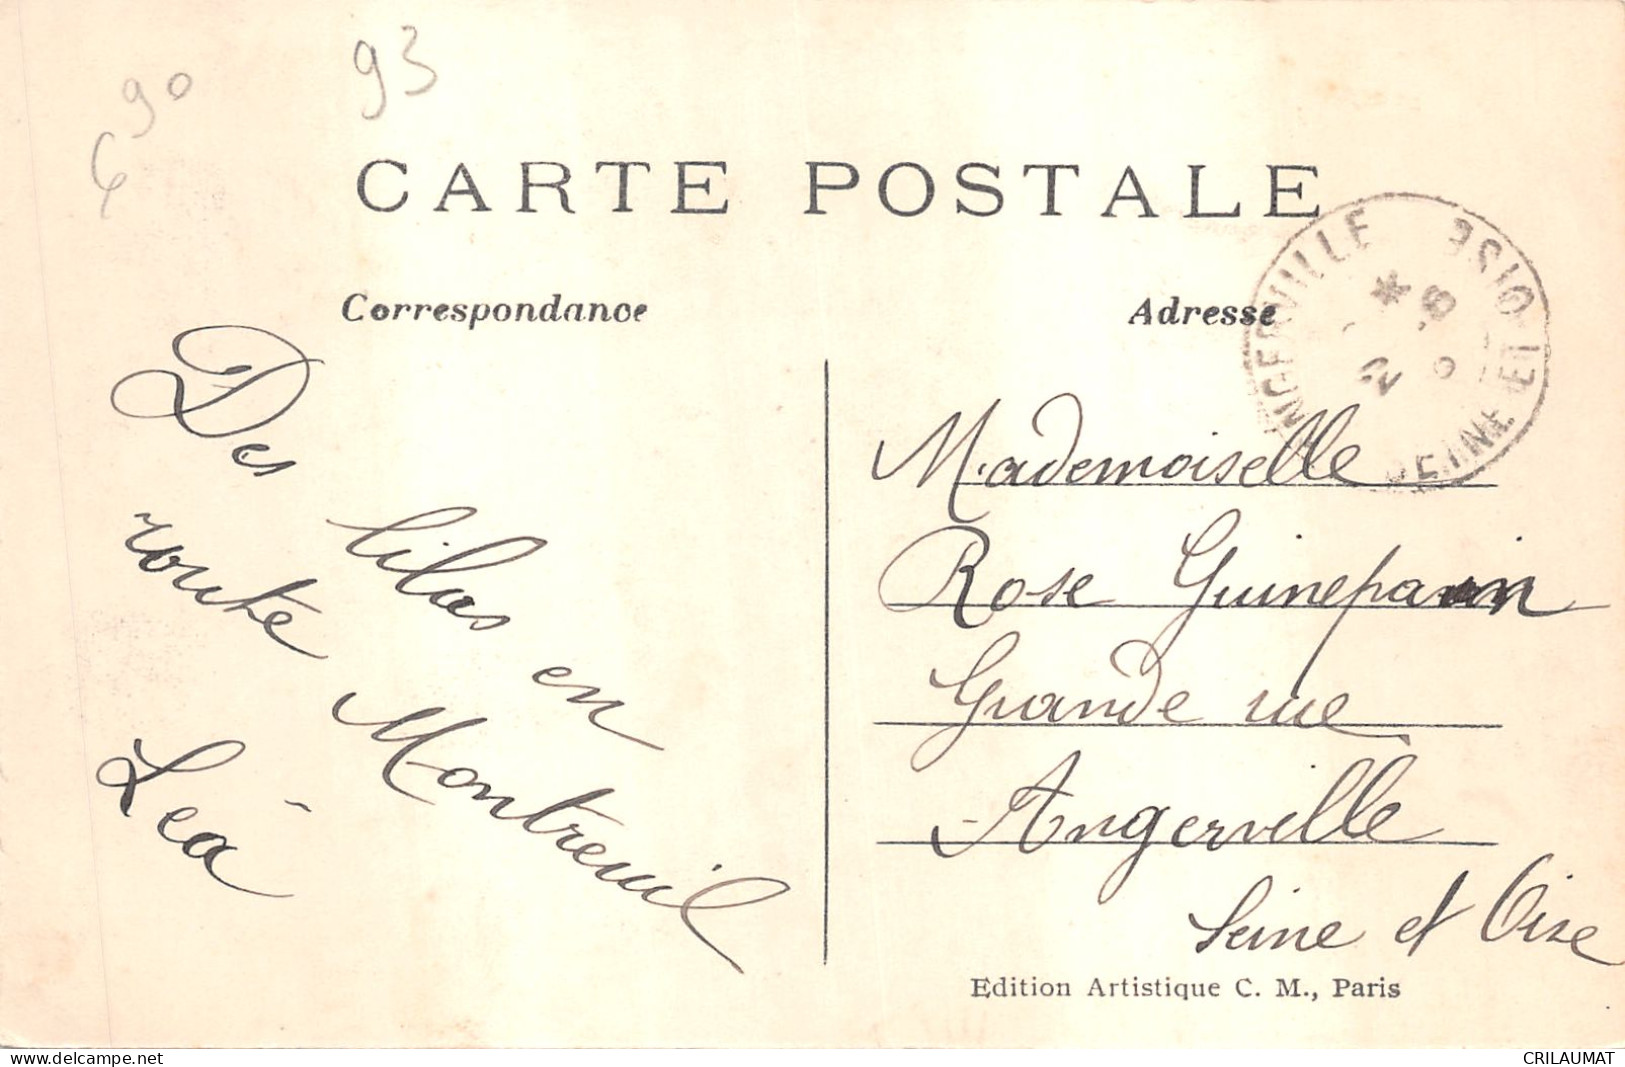 93
6 90
CARTE POSTALE
Correspondance
Adresse
ANGERVILLE
SEINE ET OISE
Des lilas en
route Montreuil
Léa
Mademoiselle
Rose Guinepain
Grande rue
Angerville
Seine et Oise
Edition Artistique C. M., Paris
delcampe.net
CRILAUMAT